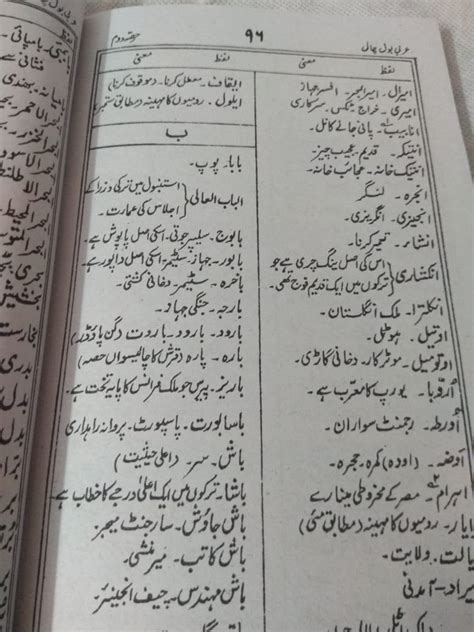 عربی بول چال
۹۶
حصہ دوم
لفظ
معنی
امیرال۔ امیر البحر۔ افسر جہاز
امیری۔ خراج۔ ٹکس۔ سرکاری
انابیب۔ پانی جانے کا نل۔
انتیکہ۔ قدیم۔ عجیب چیز۔
انتیک خانہ۔ عجائب خانہ۔
انجرہ۔ لنگر
انجیزی۔ انگریزی۔
انشار۔ تعمیر کرنا۔
انکشاری
اس کی اصل ینگ چری ہے جو
ترکوں میں ایک قدیم فوج تھی۔
انکلترا۔ ملک انگلستان۔
اوتیل۔ ہوٹل۔
اوتومبیل۔ موٹر کار۔ دخانی گاڑی۔
اوروبا۔ یورپ کا معرب ہے۔
اورطہ۔ رجمنٹ سواران۔
اوضہ۔ (اودہ) کمرہ۔ حجرہ۔
اہرام۔ مصر کے مخروطی مینارے
یار۔ رومیوں کا مہینہ (مطابق مئی)
یالت۔ ولایت۔
یراد۔ آمدنی
لفظ
معنی
ایقاف۔ معطل کرنا۔ (موقوف کرنا)
ایلول۔ رومیوں کا مہینہ (مطابق ستمبر)
ب
بابا۔ پوپ۔
الباب العالی
استنبول میں ترکی وزرا کے
اجلاس کی عمارت۔
بابوج۔ سلیپر جوتی۔ اسکی اصل پاپوش ہے۔
بابور۔ جہاز۔ سٹیمر۔ اسکی اصل واپور ہے۔
باخرہ۔ سٹیمر۔ دخانی کشتی۔
بارجہ۔ جنگی جہاز۔
بارود۔ بارود۔ باروت (گن پاؤڈر)
بارہ۔ پارہ (قرش کا چالیسواں حصہ)
باریز۔ پیرس جو ملک فرانس کا پایہ تخت ہے۔
باسابورت۔ پاسپورٹ۔ پروانہ راہداری
باش۔ سر۔ (اعلی حیثیت)
باشا۔ ترکوں میں ایک اعلیٰ درجے کا خطاب ہے
باش جاوش۔ سارجنٹ میجر
باش کاتب۔ میر منشی۔
باش مہندس۔ چیف انجینئر۔